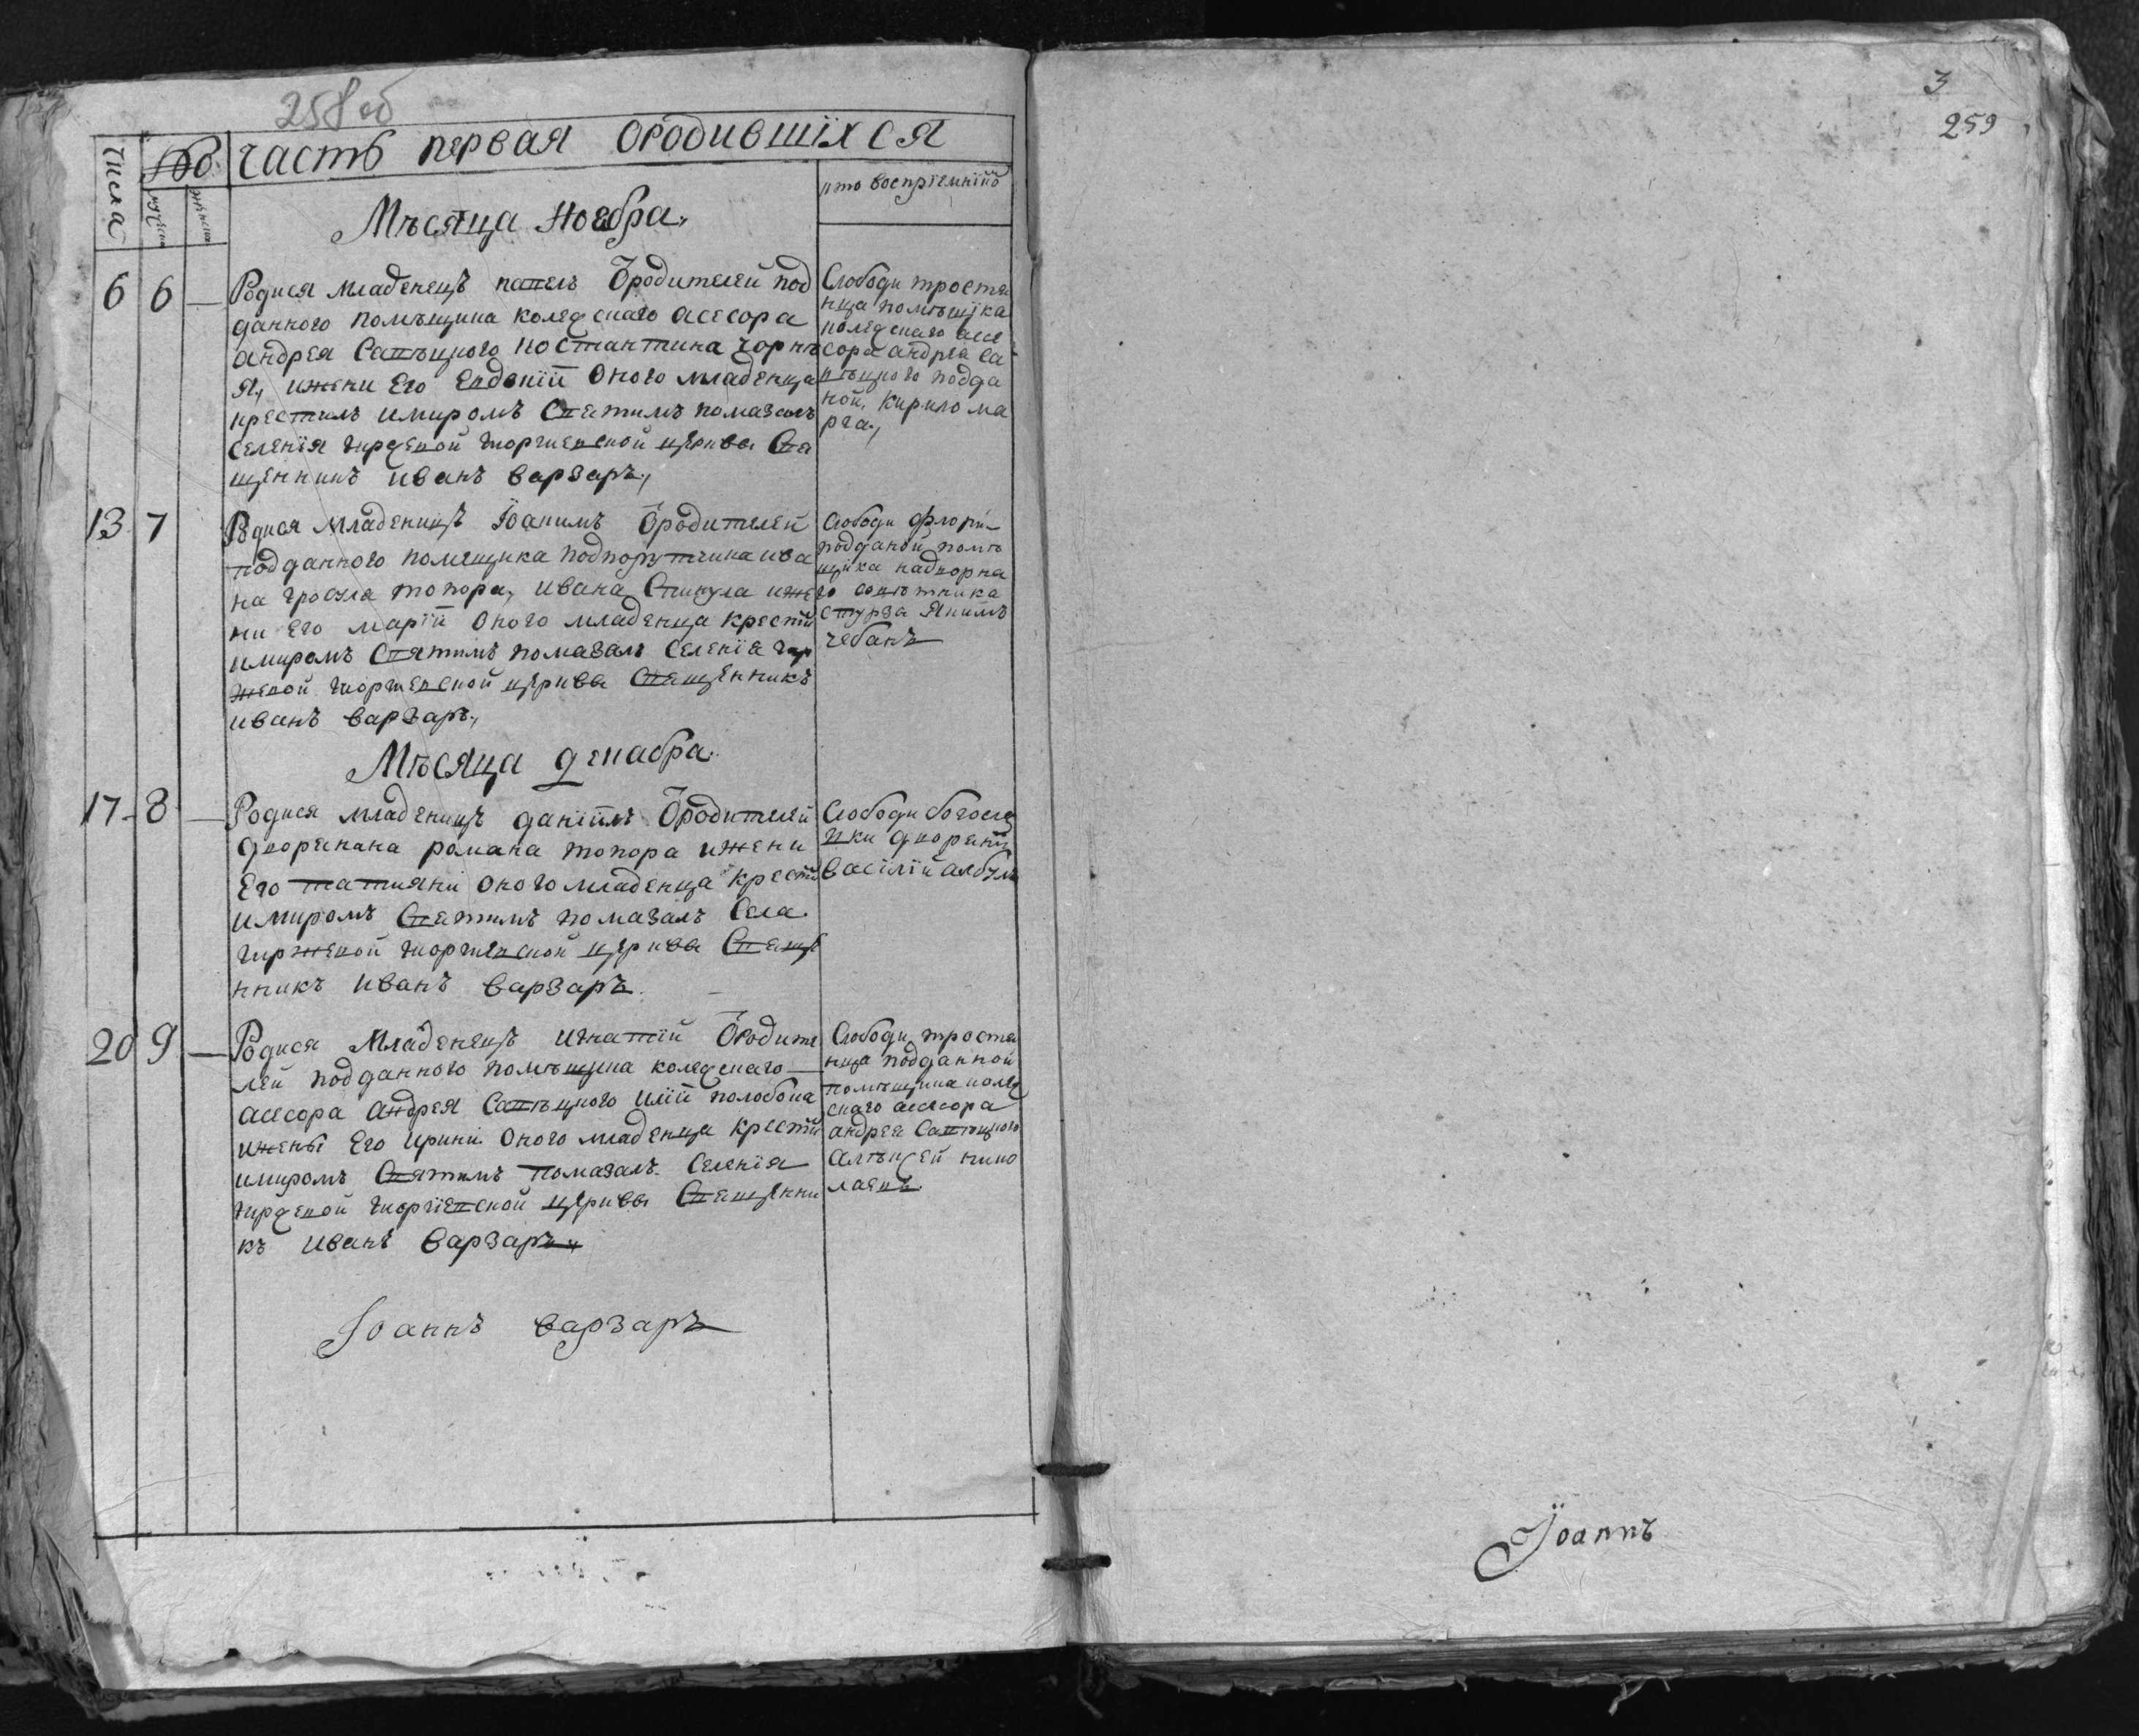 258 об
Часть первая ородившїхся
Числа
кто воспрїемнїкъ
Мѣсяца Ноебра,
6 6 — Родися младенецъ павелъ ѿродителей под
данного помѣщика колежскаго асесора
андрея Сапѣцкого костантина чорнѣ
я, ижени Его Евдокїй Оного младенца
крестилъ имиромъ Святимъ помазалъ
Селенїя гирževой георгиевской церкви Свя
щенникъ иванъ варзаръ,
Слободи тростя
нца помѣщїка
колежскаго асе
сора андрея са
пѣцкого подда
ной, кирило ма
рга,
13 7 Родися младеницъ Їоакимъ ѿродителей
подданного помещика подпорутчика ива
на гросула топора, ивана Спикула иже
ни Его марїй Оного младенца крестї
имиромъ Святимъ помазалъ Селенїя гир
жевой георгиевской церкви Священникъ
иванъ варзаръ,
Слободи флорї
подданой помѣ
щика надворна
го совѣтника
стурза Якимъ
чебанъ
Мѣсяца декабра
17 - 8 — Родися младеницъ данїилъ ѿродителей
дворенана романа топора ижени
Его татияни оного младенца крестї
имиромъ Святимъ помазалъ Села
гиржевой георгиевской церкви Свяще
нникъ иванъ варзаръ.
Слободи богосле
вки дворенї
василїй албулъ
20 9 — Родися Младенецъ игнатїй ѿродите
лей подданного помѣщика колежскаго
асесора андрея Сапѣцкого илїй полобока
ижены Его ирини Оного младенца крестї
имиромъ Святимъ помазалъ Селенїя
гиржевой георгїевской церкви Священни
къ иванъ варзаръ
Слободи тростя
нца подданной
помѣщика колеж
скаго асесора
андрея Сапѣцкого
алѣксей нико
лаевъ
Їоаннъ варзаръ
3
259
Їоаннъ